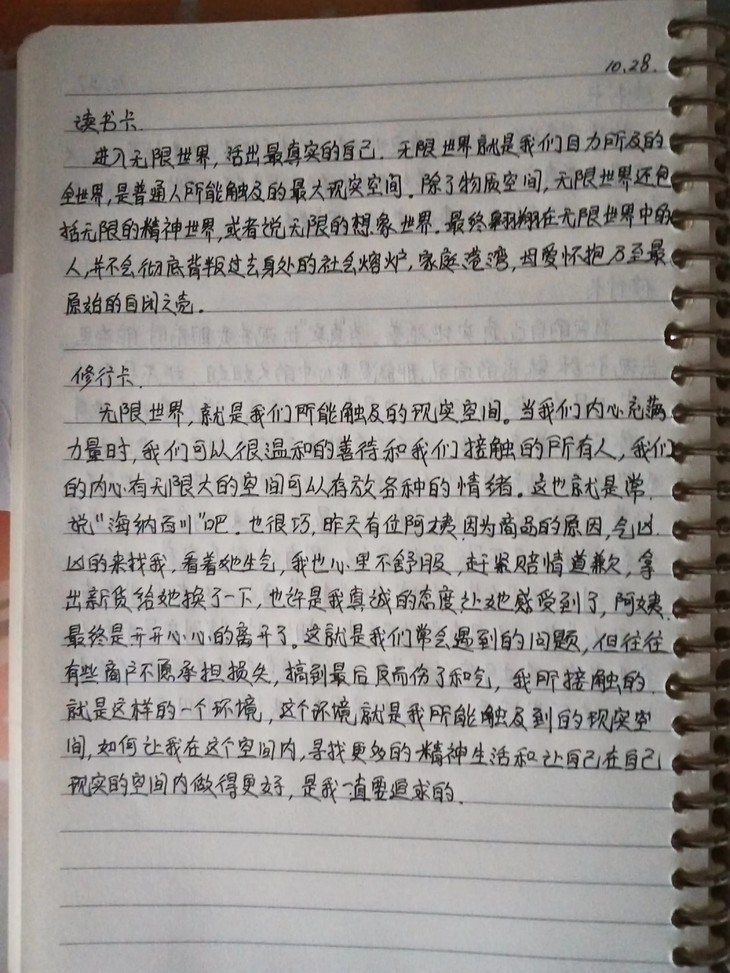 10.28.
读书卡.
进入无限世界，活出最真实的自己. 无限世界就是我们目力所及的
全世界，是普通人所能触及的最大现实空间. 除了物质空间，无限世界还包
括无限的精神世界，或者说无限的想象世界. 最终翱翔在无限世界中的
人，并不会彻底背叛过去身处的社会熔炉，家庭港湾，母爱怀抱乃至最
原始的自闭之壳。
修行卡.
无限世界，就是我们所能触及的现实空间。当我们内心充满
力量时，我们可以很温和的善待和我们接触的所有人，我们
的内心有无限大的空间可以存放各种的情绪。这也就是常
说“海纳百川”吧. 也很巧，昨天有位阿姨因为商品的原因，气凶
凶的来找我，看着她生气，我也心里不舒服，赶紧赔情道歉，拿
出新货给她换了一下，也许是我真诚的态度让她感受到了，阿姨
最终是开开心心的离开了。这就是我们常会遇到的问题，但往往
有些商户不愿承担损失，搞到最后反而伤了和气，我所接触的
就是这样的一个环境，这个环境就是我所能触及到的现实空
间，如何让我在这个空间内，寻找更多的精神生活和让自己在自己
现实的空间内做得更好，是我一直要追求的.